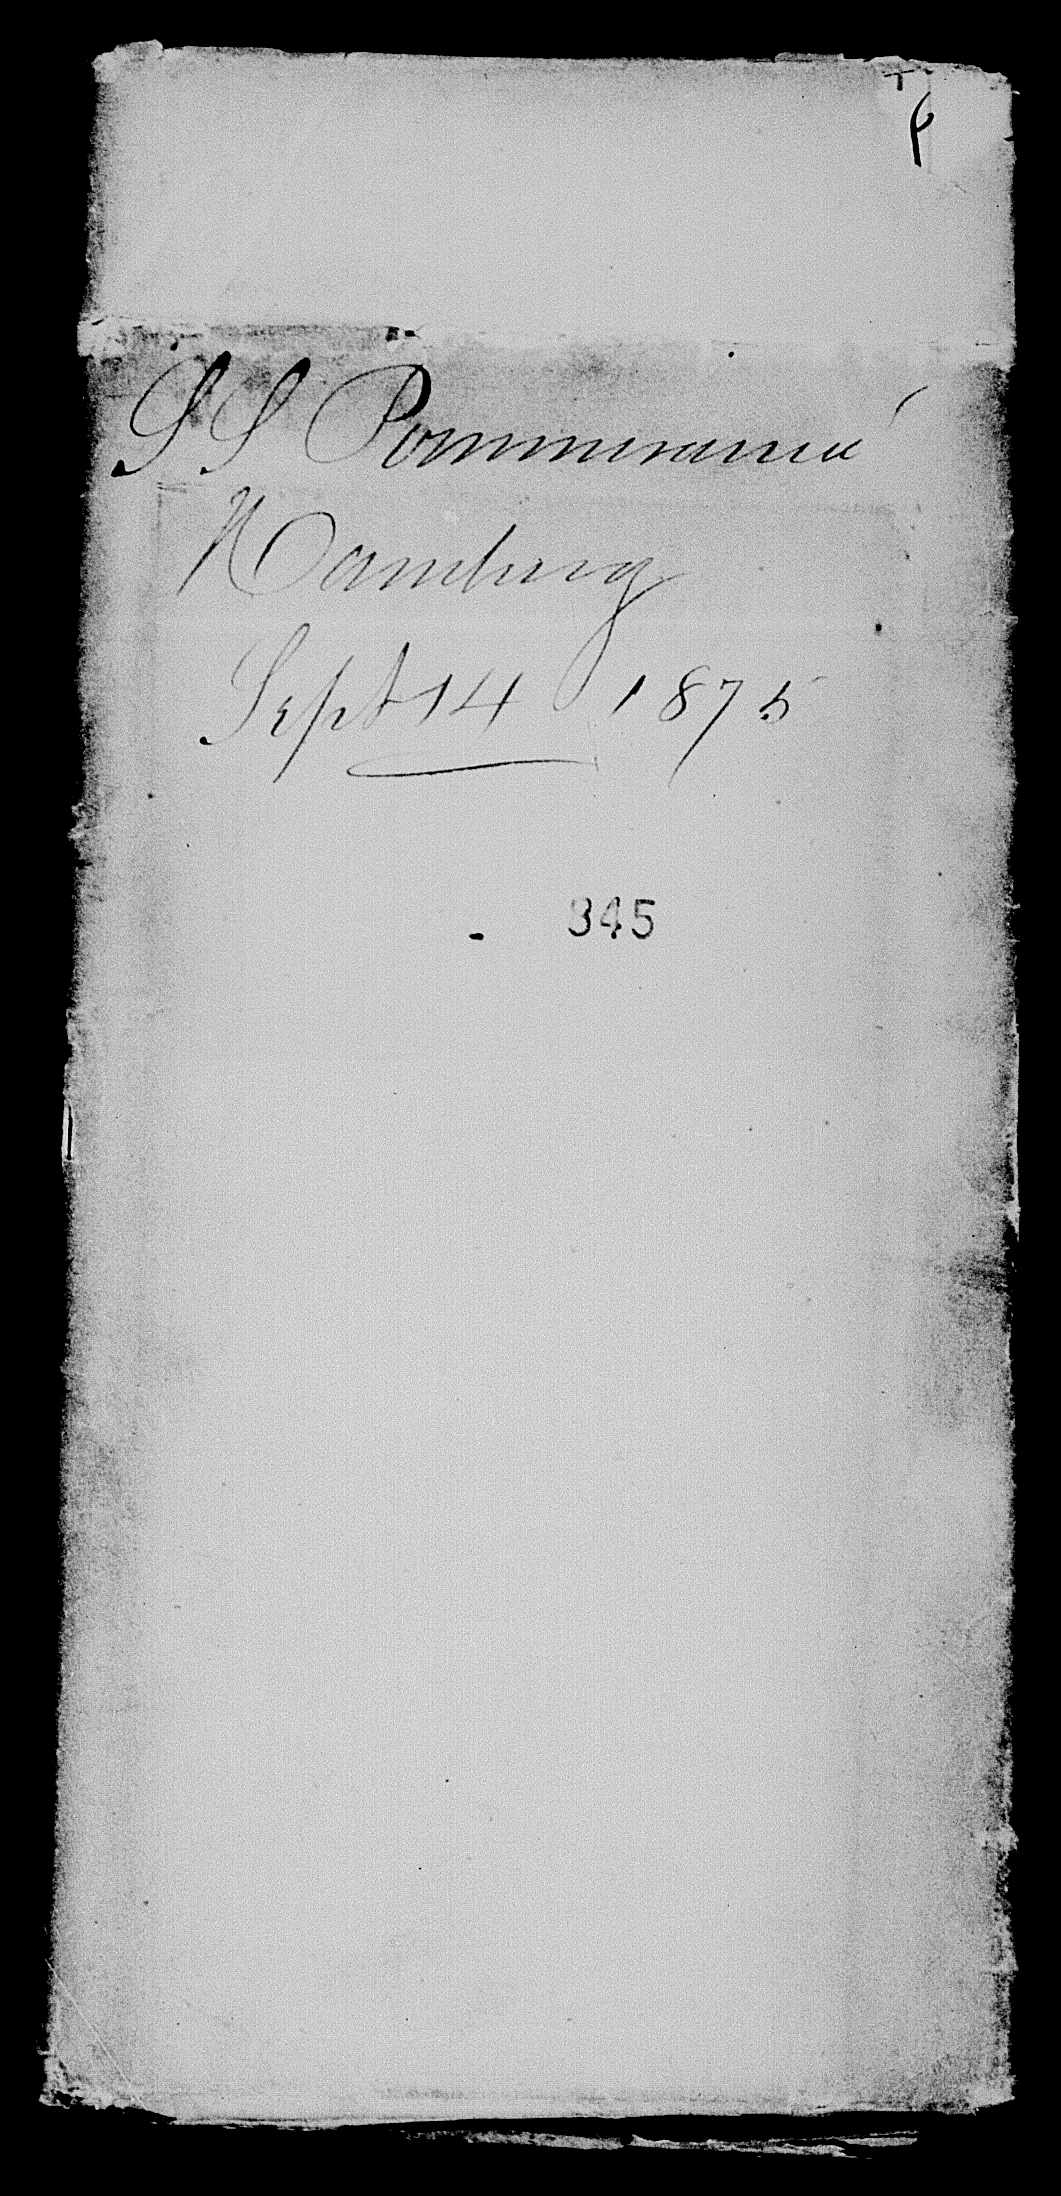 SS Pommerania
Hamburg
Sept 14 1875
845